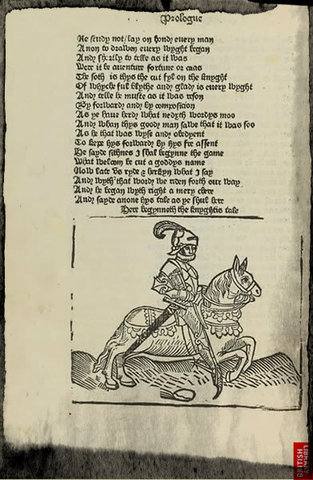 Prologue
Ne study not / lay on honde euery man
Anon to drawen euery wyght began
And shortly to telle as it was
Were it be auenture fortune or caas
The soth is thys the cut fyl on the knyght
Of whyche ful blythe and glady is euery wyght
And telle he muste as it was reson
By forwarde and by composicion
As ye haue herde what nedyth wordys moo
And whan thys goode man sawe that it was soo
As he that was wyse and obedyent
To kepe hys forwarde by hys fre assent
He sayde sithnes I shal begynne the game
What welcom be cut a goddys name
Now late vs ryde & herkyn what I say
And wyth that worde we riden forth our way
And he began wyth right a mery chere
And sayde anone hys tale as ye shul here
Here begynneth the knyghtis tale
BRITISH
LIBRARY